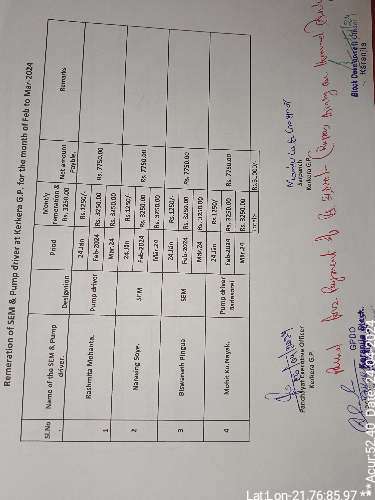 Remeration of SEM & Pump driver at Kerkera G.P. for the month of Feb to Mar-2024
Sl.No Name of the SEM & Pump driver. Designtion Priod Monthly remeration @ Rs. 3250.00 Net amount Payble. Remarks
1 Rashmita Mohanta. Pump driver 24.Jan Rs.1250/- Rs. 7750.00
Feb-2024 Rs. 3250.00
Mar.24 Rs. 3250.00
2 Naheeing Soye. SEM 24.Jan Rs.1250/ Rs. 7750.00
Feb-2024 Rs. 3250.00
Mar.24 Rs. 3250.00
3 Biswanath Pingua SEM 24.Jan Rs.1250/ Rs. 7750.00
Feb-2024 Rs. 3250.00
Mar.24 Rs. 3250.00
4 Pump driver 24.Jan Rs.1250/ Rs. 7750.00
Feb-2024 Rs. 3250.00
Mar.24 Rs. 3250.00
Total Rs.31000/-
Panchayat Executive Officer
Kerkera G.P.
Sarpanch
Kerkera G.P.
Passed for Payment of Rs
GPDO
Karanjia Block
Block Development Officer
Karanjia
Lat:Lon-21.76:85.97